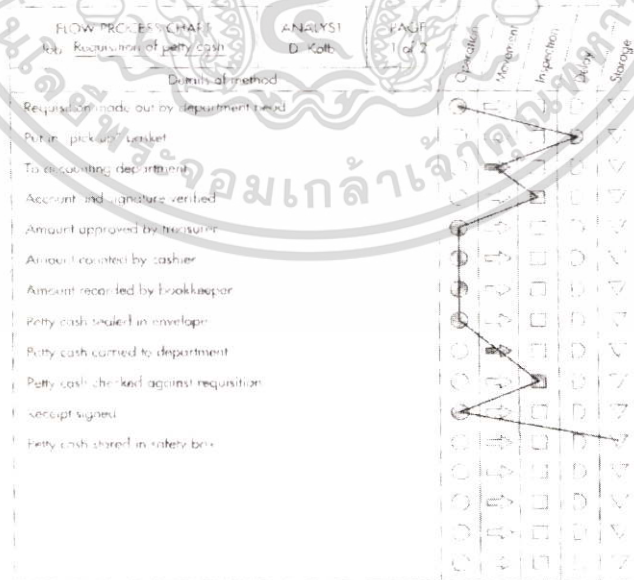 FLOW PROCESS CHART
Job Requisition of petty cash
ANALYST
D. Kolb
PAGE
1 of 2
Operation
Movement
Inspection
Delay
Storage
Details of method
Requisition made out by department head
Put in "pick-up" basket
To accounting department
Account and signature verified
Amount approved by treasurer
Amount counted by cashier
Amount recorded by bookkeeper
Petty cash sealed in envelope
Petty cash carried to department
Petty cash checked against requisition
Receipt signed
Petty cash stored in safety box